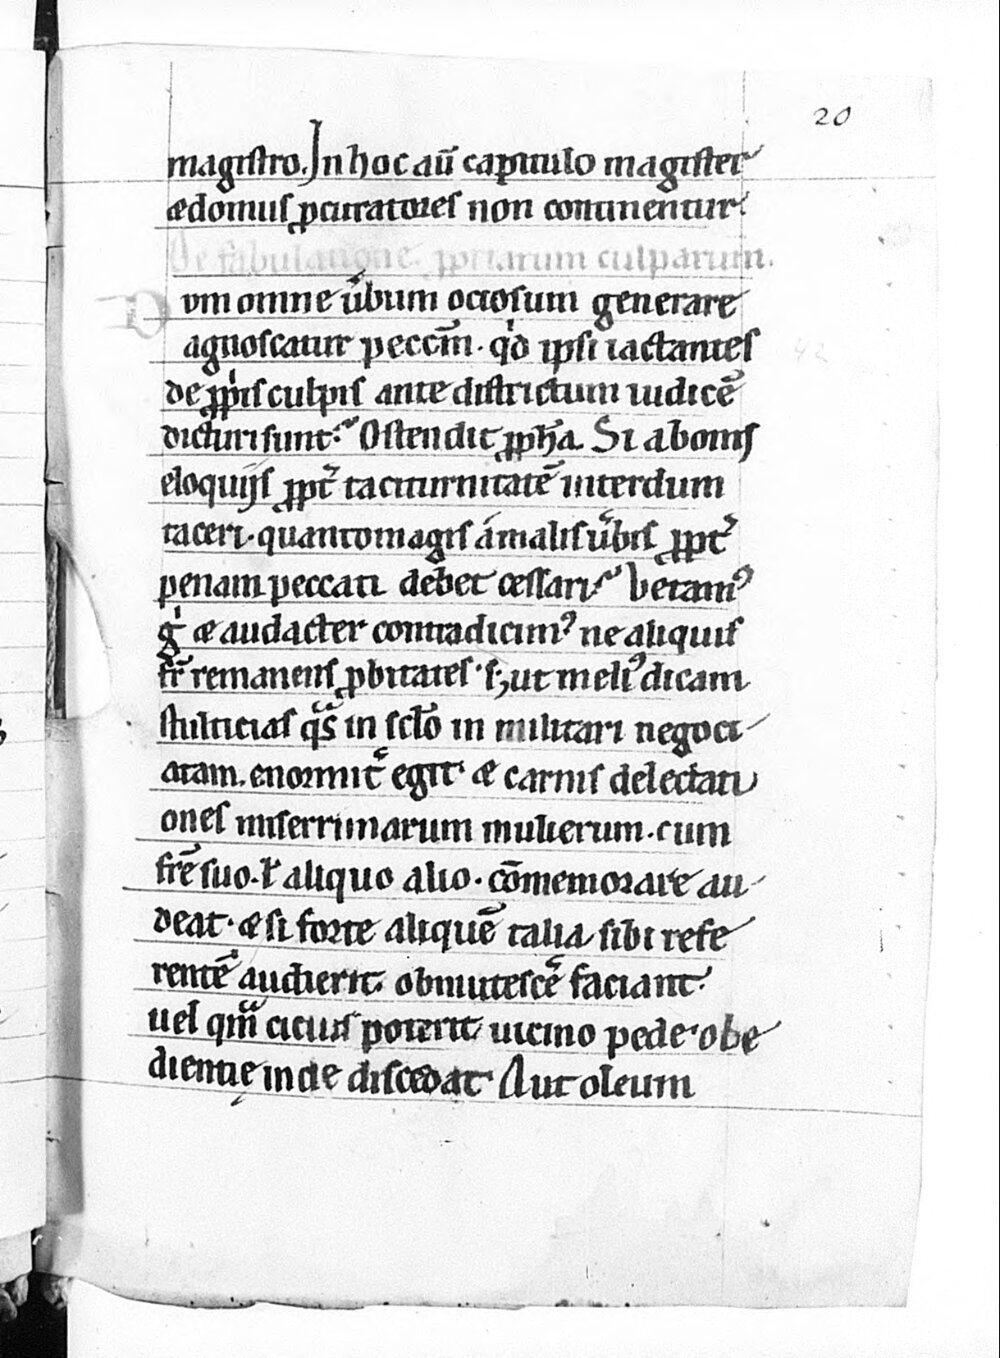 20
magistro. In hoc aū capitulo magister
ædomuſ ꝓcuratoreſ non continentur.
De fabulatione ꝓpriarum culparum.
Dum omne u̓bum ocioſum generare
agnoſcatur peccm̄. qͥd ipſi iactanteſ
de ꝓpͥiſ culpiſ ante diſtrictum iudicē
dicturi ſunt. Oſtendit ꝓph̄a. Si a boniſ
eloquijſ ꝓpt̓ taciturnitatē interdum
taceri. quantomagiſ a᷄maliſ u̓biſ ꝓpt̓
penam peccati debet ceſſari. Vetamꝰ
gͥ æ audacter contradicimꝰ ne aliquiſ
fr̄ remanenſ ꝓbitateſ. ſꝫ ut meliꝰ dicam
ſtulticiaſ qͣſ in ſcl̄o in militari negoci
atam. enormit̓ egit. æ carniſ delectati
oneſ miſerrimarum mulierum. cum
frē ſuo. ł aliquo alio. cōmemorare au
deat. æ ſi forte aliquē talia ſibi refe
rentē audierit. obmuteſcē faciant.
uel qm̄ ciciuſ poterit uicino pede obe
dientię inde diſcedat. Aut oleum
42